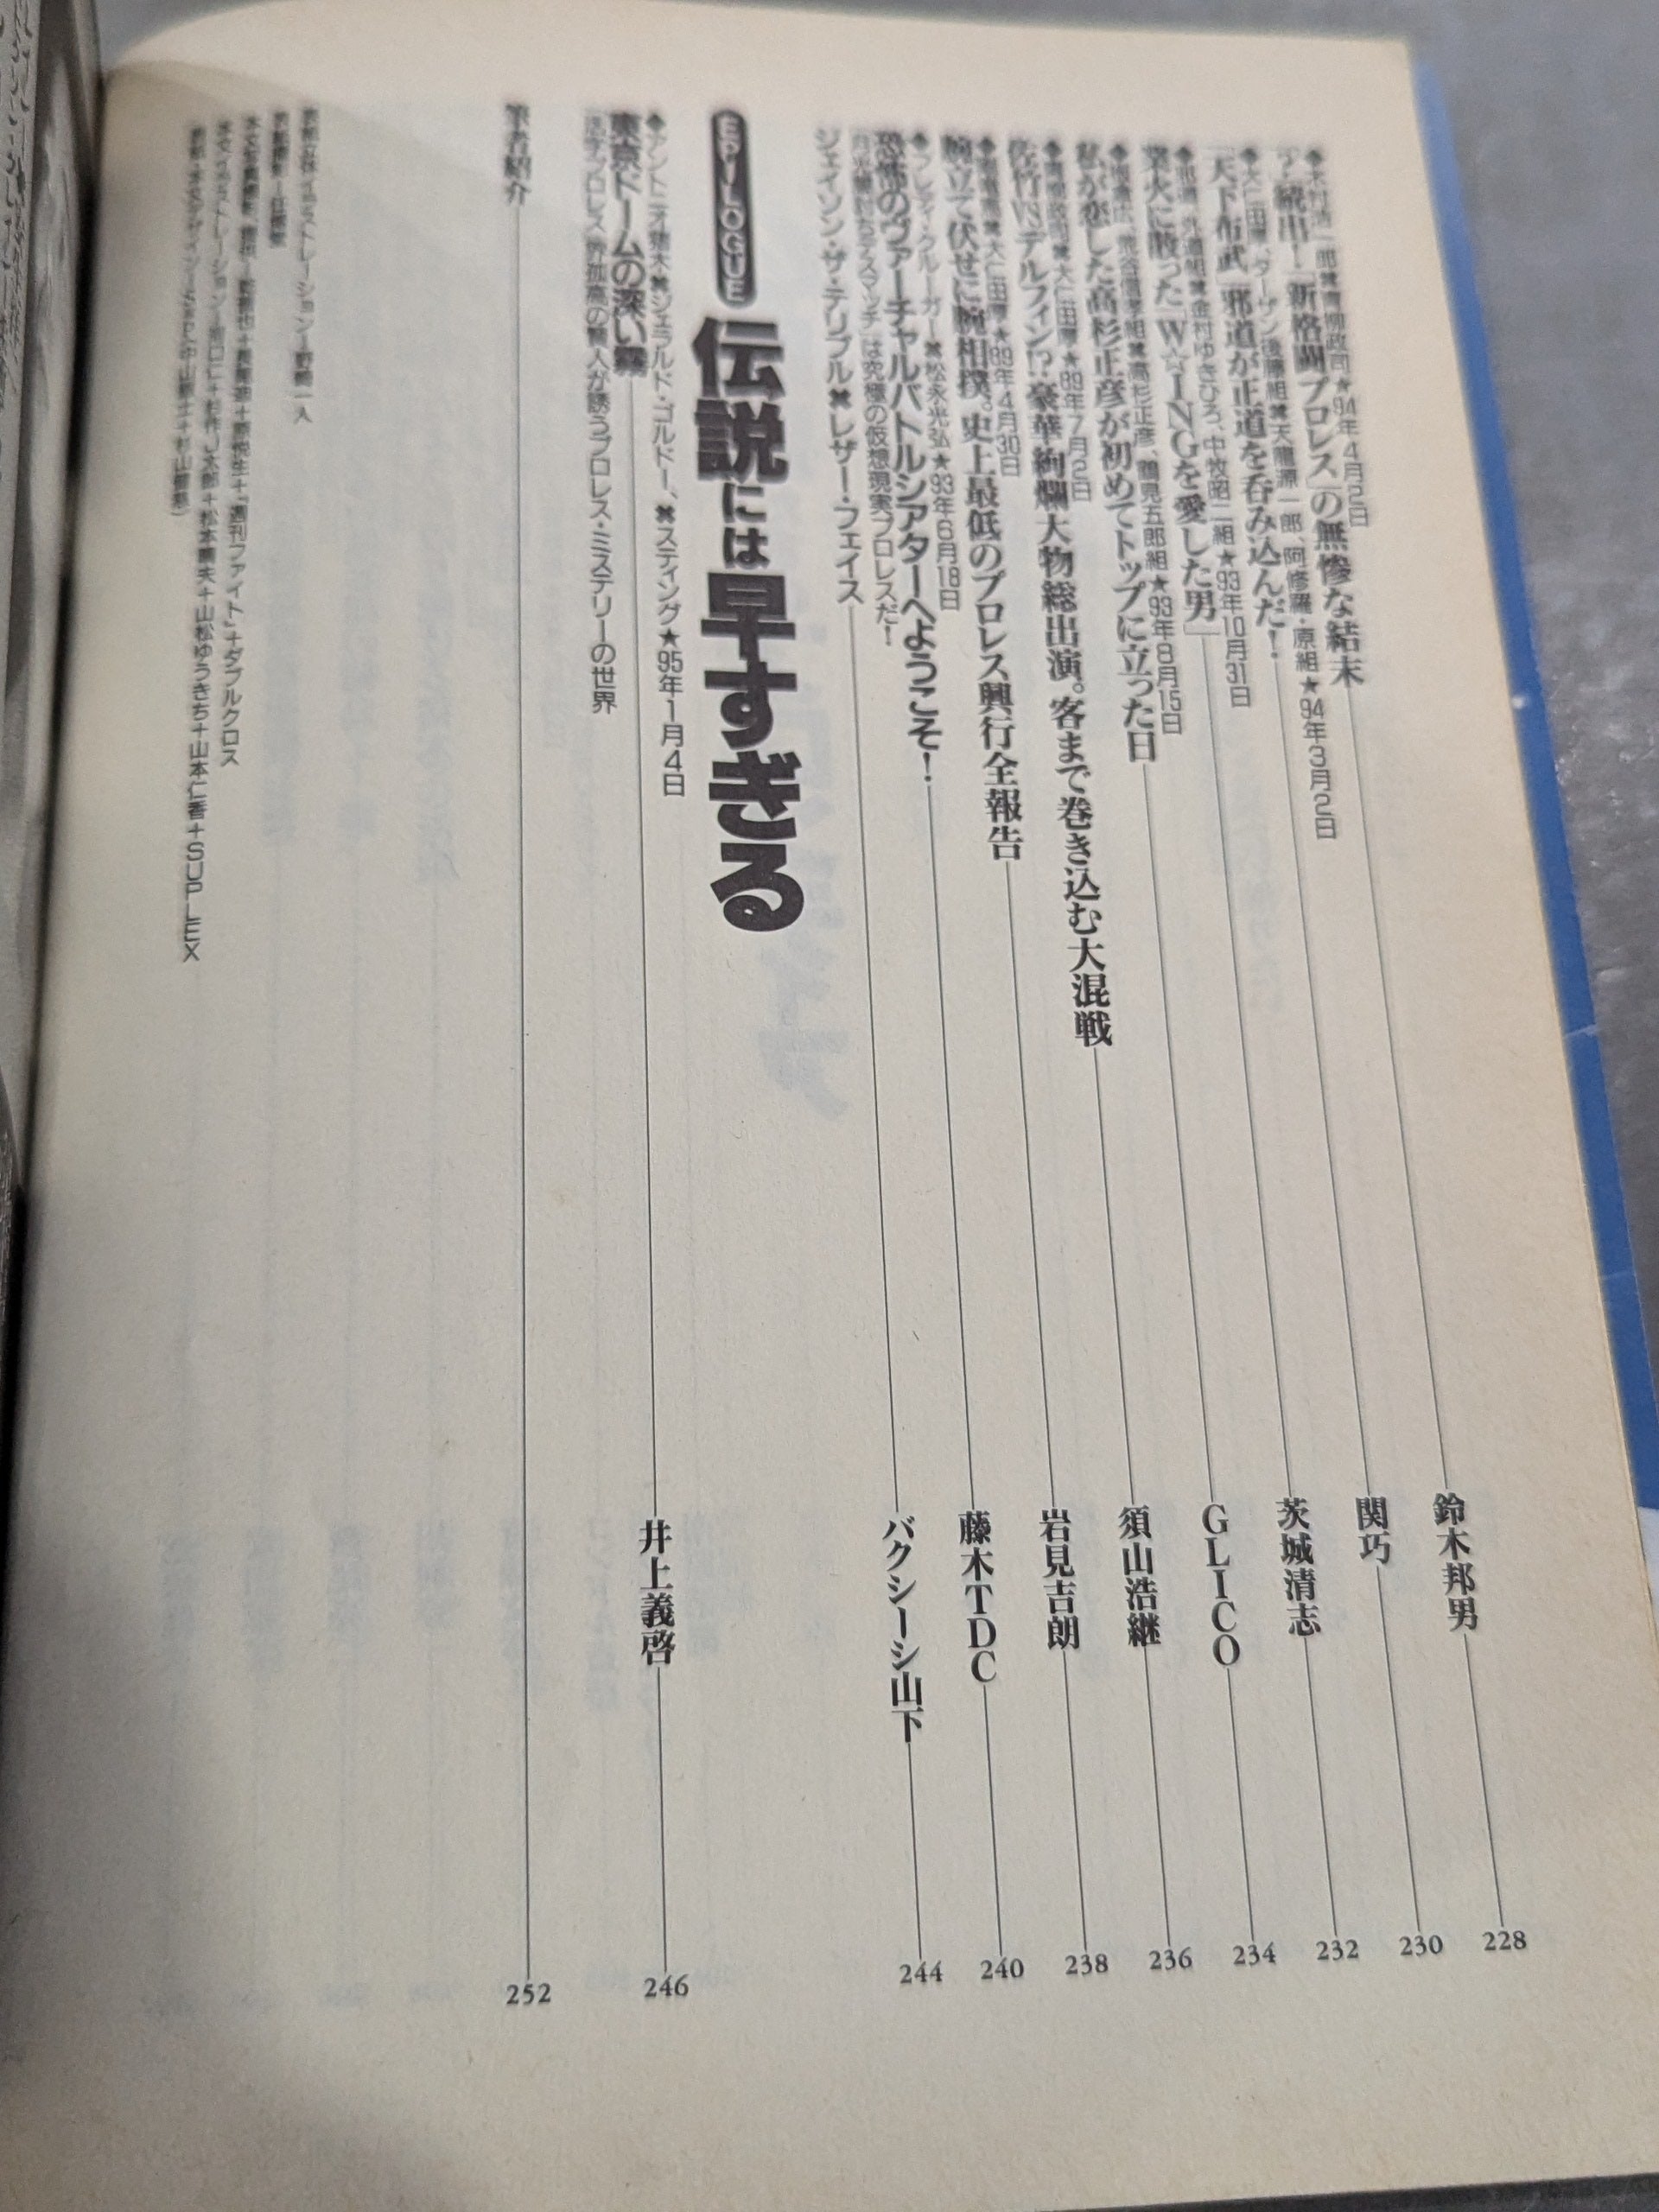 ◆木村浩一郎✖青柳政司★94年4月2日
？続出！「新格闘プロレス」の無惨な結末 鈴木邦男 228
◆大仁田厚、ターザン後藤組✖天龍源一郎、阿修羅・原組★94年3月2日
「天下布武」邪道が正道を呑み込んだ！ 関巧 230
金村ゆきひろ、中牧昭二組★93年10月31日
業火に散った「W☆INGを愛した男」 茨城清志 232
荒谷信孝組✖高杉正彦、鶴見五郎組★93年8月15日
私が恋した高杉正彦が初めてトップに立った日 GLICO 234
◆青柳政司✖大仁田厚★89年7月2日
佐竹VSデルフィン!?豪華絢爛大物総出演。客まで巻き込む大混戦 須山浩継 236
✖大仁田厚★89年4月30日
腕立て伏せに腕相撲。史上最低のプロレス興行全報告 岩見吉朗 238
◆フレディ・クルーガー✖松永光弘★93年6月18日
恐怖のヴァーチャルバトルシアターへようこそ！ 藤木TDC 240
月光闇討ちデスマッチ」は究極の仮想現実プロレスだ！
ジェイソン・ザ・テリブル✖レザー・フェイス バクシーシ山下 244
EPILOGUE 伝説には早すぎる
◆アントニオ猪木✖ジェラルド・ゴルドー、✖スティング★95年1月4日
東京ドームの深い霧 井上義啓 246
活字プロレス界孤高の賢人が誘うプロレス・ミステリーの世界
筆者紹介 252
表紙立体イラストレーション＝野崎一人
表紙撮影＝
本文写真撮影、提供＝ ＋「週刊ファイト」＋ダブルクロス
本文イラストレーション＝ ＋杉作J太郎＋松本 夫＋山松ゆうきち＋山本仁香＋SUPLEX
表紙・本文デザイン＝